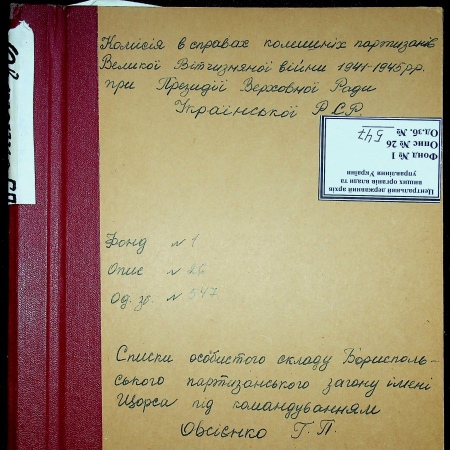 Комісія в справах колишніх партизанів
Великої Вітчизняної війни 1941-1945 рр.
при Президії Верховної Ради
Української РСР.
Центральний державний архів
вищих органів влади та
управління України
Фонд № 1
Опис № 26
Од.зб. № 547
Фонд № 1
Опис № 26
Од. зб. № 547
Списки особистого складу Бориспольсь-
ського партизанського загону імені
Щорса під командуванням
Овсієнко Г. П.